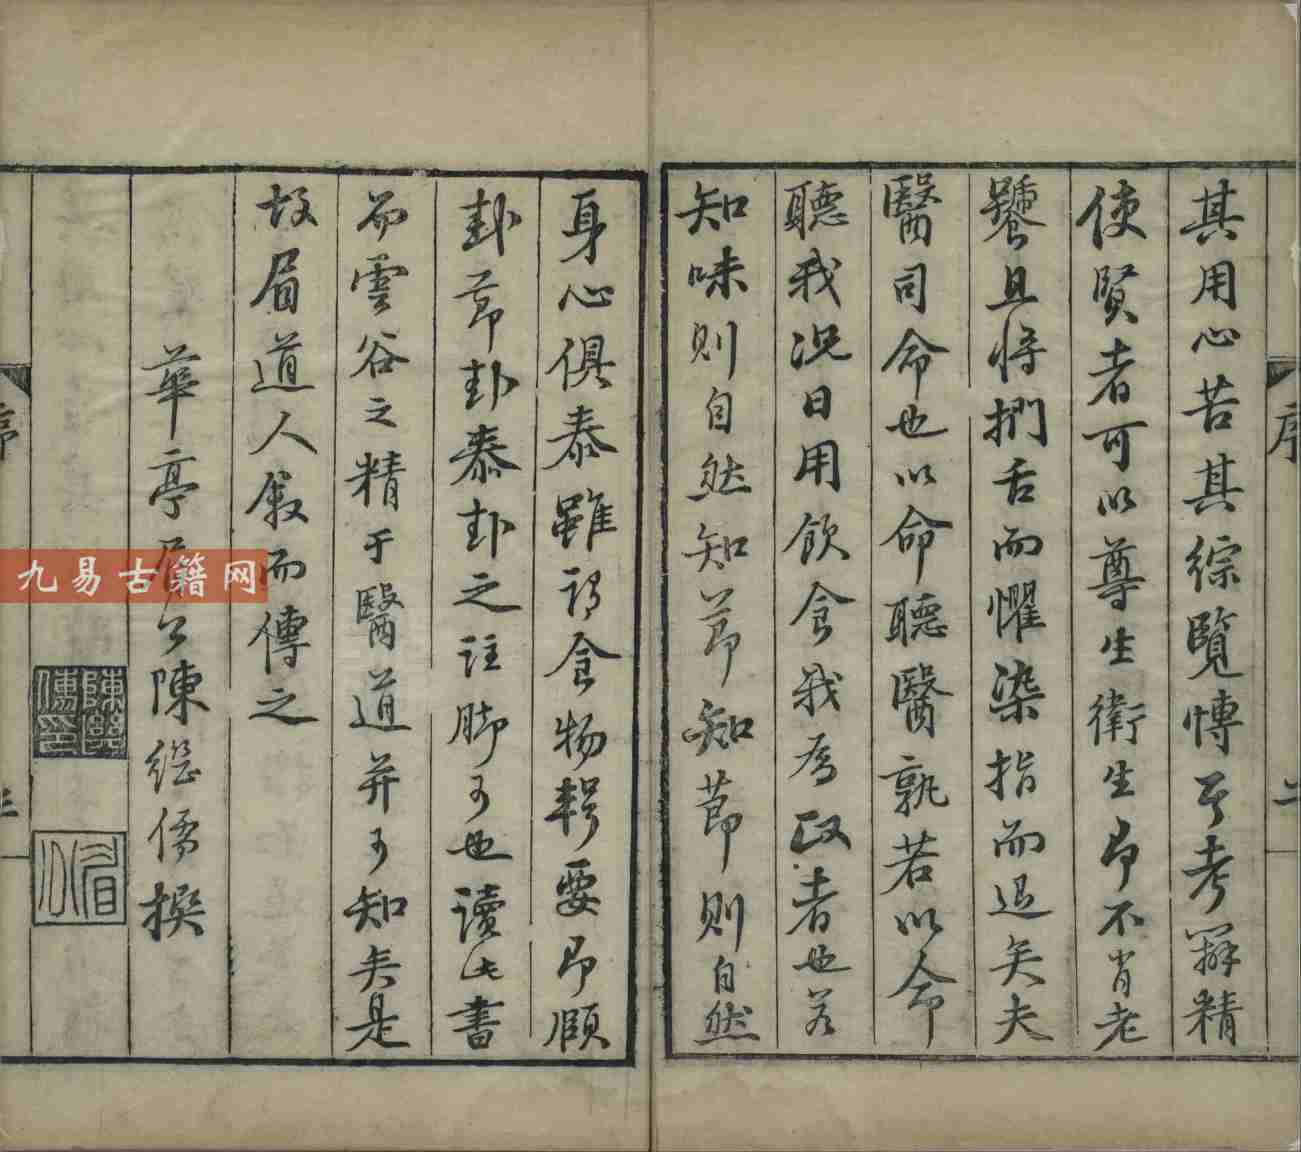 其用心苦其綜覽博其考辯精
使賢者可以尊生衛生即不肖老
饕且將捫舌而懼染指而退矣夫
醫司命也以命聽醫孰若以命
聽我況日用飲食我為政者也若
知味則自然知節知節則自然
身心俱泰雖謂食物輯要即頤
卦節卦泰卦之註脚可也讀此書
而雲谷之精于醫道并可知矣是
故眉道人敘而傳之
華亭眉公陳繼儒撰
陳繼儒印
眉公
序
二
序
三
九易古籍网